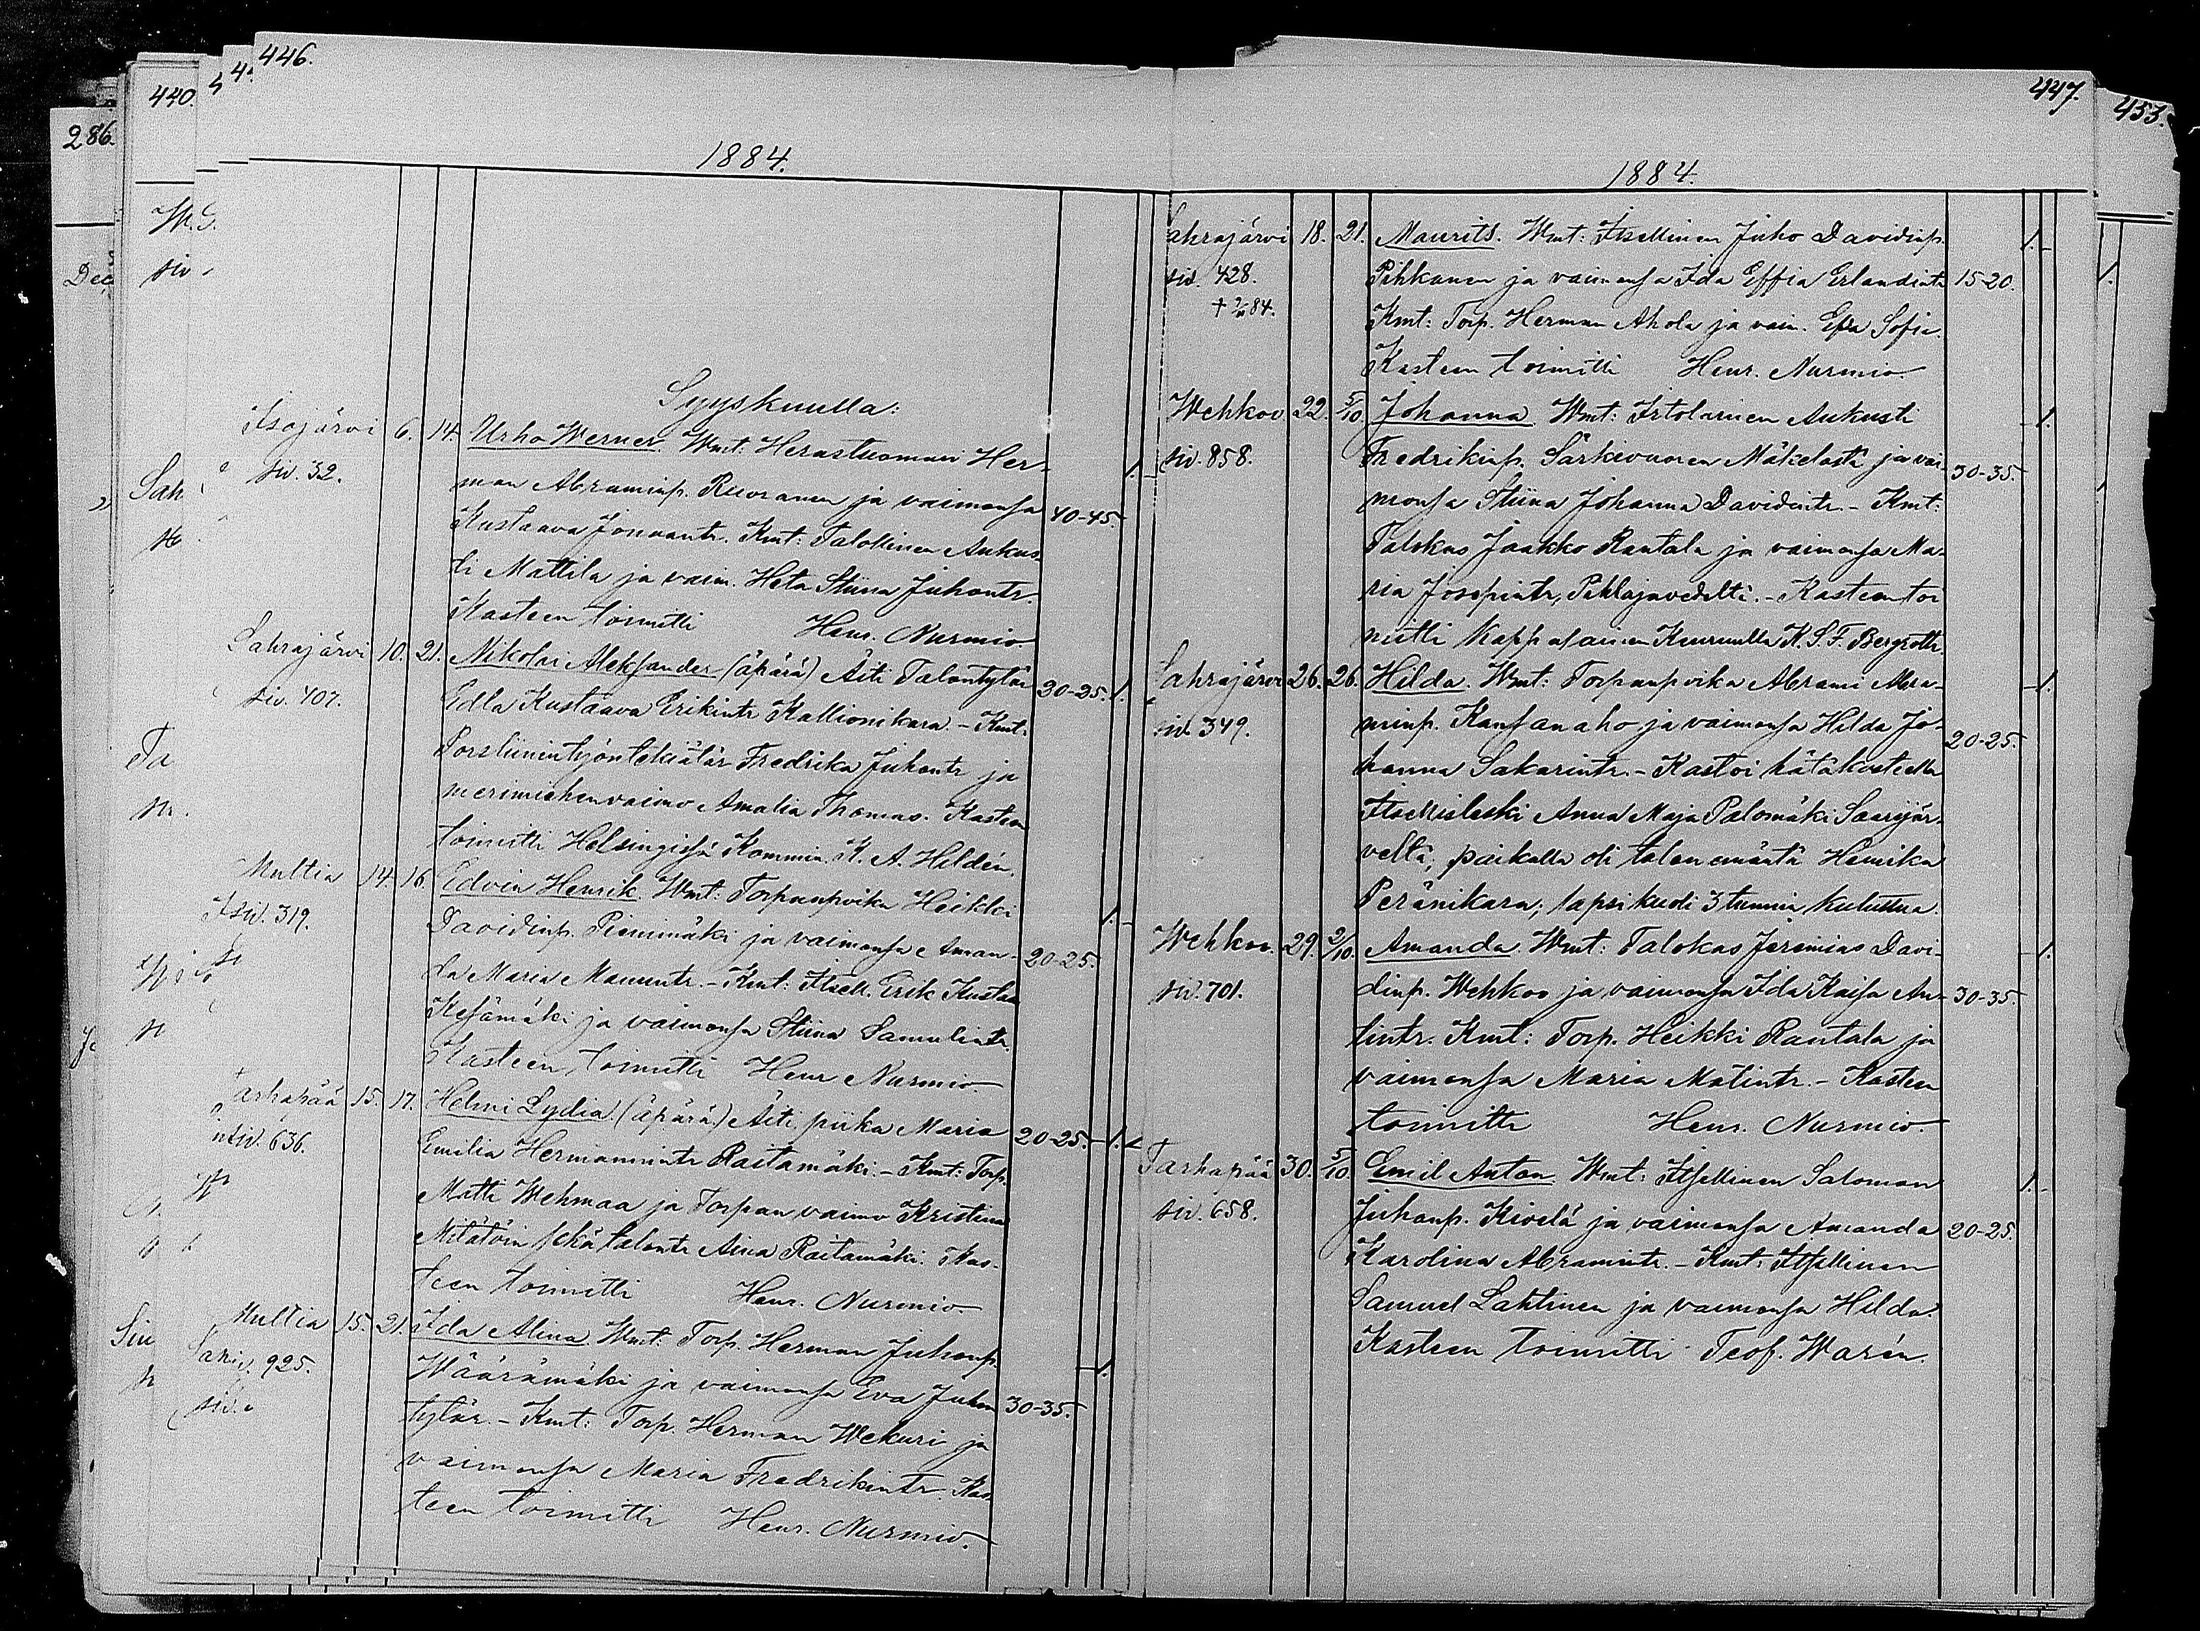 446.
1884.
Syyskuulla:
Isojärvi 6. 14. Urho Werner. Wmt: Herastuomari Her-
siv. 32. man Abraminp. Ruoranen ja vaimonsa 40-45.
Kustaava Joonaantr. Kmt: Talollinen Aukus-
ti Mattila ja vaim. Heta Stiina Juhontr.
Kasteen toimitti Henr. Nurmio.
Sahrajärvi 10. 21. Nikolai Aleksander (äpärä) Äiti Talontytär 20-25. 1.
siv. 407. Edla Kustaava Erikintr Kallionikara. - Kmt:
Porsliinintyöntekiätär Fredrika Juhontr ja
merimiehenvaimo Amalia Thomas. Kasteen
toimitti Helsingissä Kommin. K. A. Hildén.
Multia 14. 16. Edvin Henrik. Wmt: Torpanpoika Heikki 1.
siv. 319. Davidinp. Piemmäki ja vaimonsa Aman- 20-25.
da Maria Manuntr. - Kmt: Itsell. Erik Kustaa
Kesämäki ja vaimonsa Stiina Samulintr.
Kasteen toimitti Henr Nurmio
Tarhapää 15. 17. Helmi Lydia. (äpärä) Äiti, piika Maria 20-25. 1.
siv. 636. Emilia Hermannintr Raitamäki. - Kmt: Torp.
Matti Wehmaa ja Torpan vaimo Kristiina
Mitätöin sekä talontr Aina Raitamäki. Kas-
teen toimitti Henr. Nurmio
Multia 15. 21. Ida Alina. Wmt: Torp. Herman Juhonp. 1.
siv. 925. Wäärämäki ja vaimonsa Eva Juhon 30-35.
tytär. - Kmt: Torp. Herman Wekuri ja
vaimonsa Maria Fredrikintr. Kas-
teen toimitti Henr. Nurmio.
447.
1884.
Sahrajärvi 18. 21. Maurits. Wmt: Itsellinen Juho Davidinp. 1.
siv. 428. Pihkanen ja vaimonsa Ida Effia Erlandintr 15-20.
Kmt: Torp. Herman Ahola ja vaim. Efva Sofia.
Kasteen toimitti Henr. Nurmio.
Wehkoo 22. 5/10 Johanna. Wmt: Irtolainen Aukusti 1.
siv. 858. Fredrikinp. Särkivuoren Mäkelästä ja vai- 30-35.
monsa Stiina Johanna Davidintr. - Kmt:
Talokas Jaakko Rantala ja vaimonsa Ma-
ria Josepintr, Pihlajavedeltä. - Kasteen toi
mitti Kappalainen Keuruulla K. S. F. Bergroth.
Sahrajärvi 26. 26. Hilda. Wmt: Torpanpoika Abrami Abra- 1.
siv. 349. minp. Kansanaho ja vaimonsa Hilda Jo- 20-25.
hanna Sakarintr. - Kastoi hätäkasteella
Itsellisleski Anna Maja Palomäki Saarijär-
veltä, paikalla oli talon emäntä Henrika
Peränikara; lapsi kuoli 3 tunnin kuluttua.
Wehkoo. 29. 2/10. Amanda Wmt: Talokas Jeremias Davi- 1.
siv. 701. dinp. Wehkoo ja vaimonsa Ida Kaisa An- 30-35.
tintr. Kmt: Torp. Heikki Rantala ja
vaimonsa Maria Matintr. - Kasteen
toimitti Henr. Nurmio.
Tarhapää 30. 5/10. Emil Anton. Wmt: Itsellinen Saloman 1.
siv. 658. Juhonp. Kivelä ja vaimonsa Amanda 20-25.
Karolina Abramintr. - Kmt: Itsellinen
Samuel Lahtinen ja vaimonsa Hilda.
Kasteen toimitti Teof. Warén.
453.
440.
286.